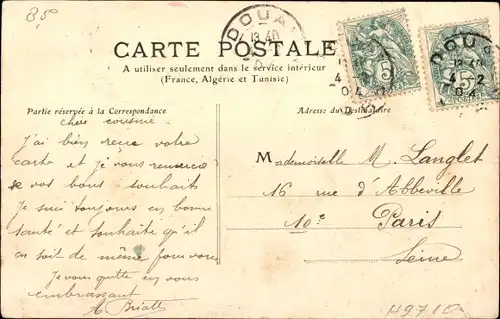 85
DOUAI
13 40
CARTE POSTALE
A utiliser seulement dans le service intérieur
(France, Algérie et Tunisie)
5
DOUAI
13 40
4 - 2
04
5
Partie réservée à la Correspondance
Adresse du Destinataire
chère cousine
j'ai bien reçue votre
carte et je vous remercie
de vos bons souhaits
Je suis toujours en bonne
santé et souhaite qu'il
en soit de même pour vous
Je vous quitte en vous
embrassant
Mademoiselle M. Langlet
16 rue d'Abbeville
10e Paris
Seine
H971D